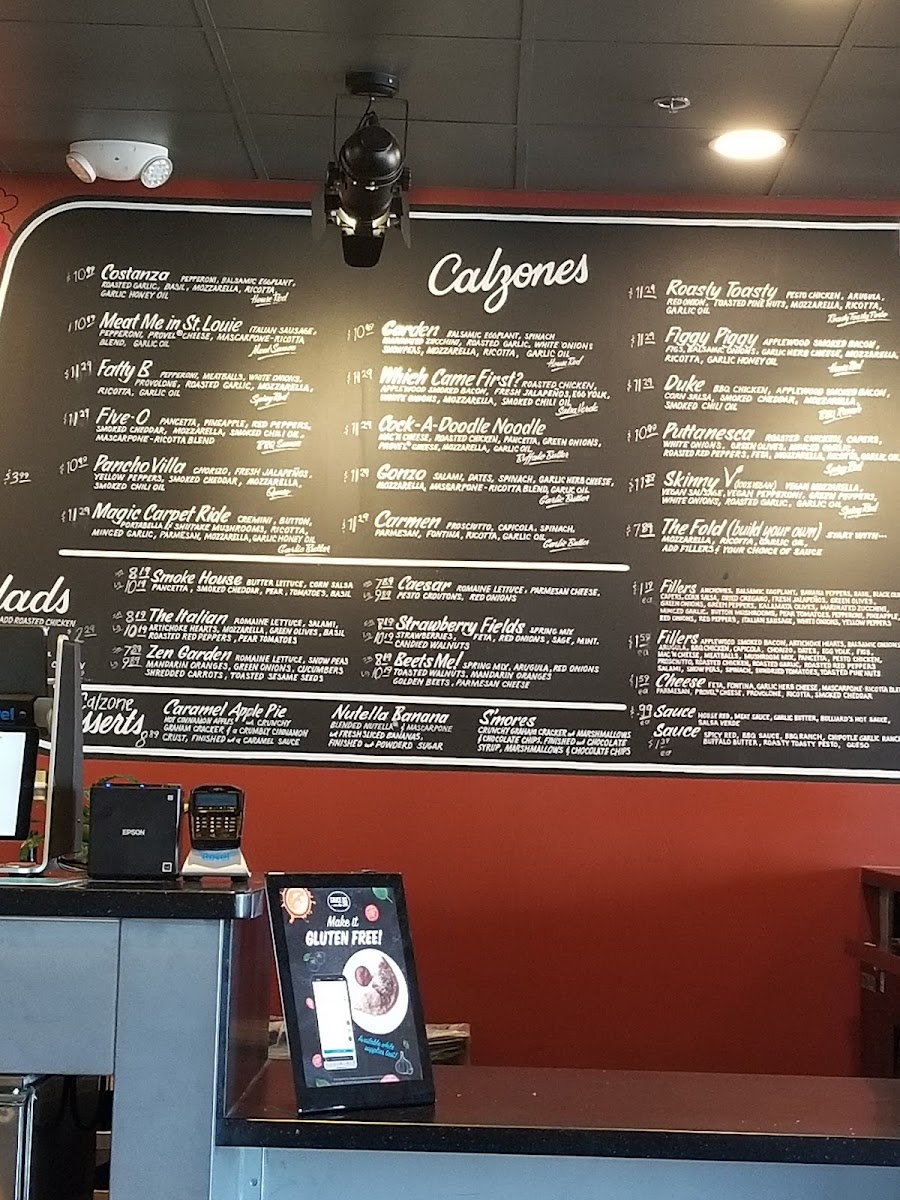 Calzones
Costanza PEPPERONI, BALSAMIC EGGPLANT,
ROASTED GARLIC, BASIL, MOZZARELLA, RICOTTA,
GARLIC HONEY OIL
House Red
Meat Me in St. Louie ITALIAN SAUSAGE,
PEPPERONI, PROVEL® CHEESE, MASCARPONE-RICOTTA
BLEND, GARLIC OIL
$11 29 Fatty B PEPPERONI, MEATBALLS, WHITE ONIONS,
PROVOLONE, ROASTED GARLIC, MOZZARELLA,
RICOTTA, GARLIC OIL
Spicy Red
$11 29 Five-O PANCETTA, PINEAPPLE, RED PEPPERS,
SMOKED CHEDDAR, MOZZARELLA, SMOKED CHILI OIL,
MASCARPONE-RICOTTA BLEND
Pancho Villa CHORIZO, FRESH JALAPEÑOS,
YELLOW PEPPERS, SMOKED CHEDDAR, MOZZARELLA,
SMOKED CHILI OIL
Queso
$11 29 Magic Carpet Ride CREMINI, BUTTON,
PORTABELLA & SHIITAKE MUSHROOMS, RICOTTA,
MINCED GARLIC, PARMESAN, MOZZARELLA, GARLIC HONEY OIL
Garlic Butter
Garden BALSAMIC EGGPLANT, SPINACH
ZUCCHINI, ROASTED GARLIC, WHITE ONIONS
SNOWPEAS, MOZZARELLA, RICOTTA, GARLIC OIL
House Red
$11 29 Which Came First? ROASTED CHICKEN,
APPLEWOOD SMOKED BACON, FRESH JALAPEÑOS, EGG YOLK,
WHITE ONIONS, MOZZARELLA, SMOKED CHILI OIL
Salsa Verde
$11 29 Cock-A-Doodle Noodle
MAC 'N CHEESE, ROASTED CHICKEN, PANCETTA, GREEN ONIONS,
PROVEL® CHEESE, MOZZARELLA, GARLIC OIL
Buffalo Butter
$11 29 Gonzo SALAMI, DATES, SPINACH, GARLIC HERB CHEESE,
MOZZARELLA, MASCARPONE-RICOTTA BLEND, GARLIC OIL
Garlic Butter
$11 29 Carmen PROSCIUTTO, CAPICOLA, SPINACH,
PARMESAN, FONTINA, RICOTTA, GARLIC OIL
Garlic Butter
$11 29 Roasty Toasty PESTO CHICKEN, ARUGULA,
RED ONION, TOASTED PINE NUTS, MOZZARELLA, RICOTTA,
GARLIC OIL
Roasty Toasty Pesto
$11 29 Figgy Piggy APPLEWOOD SMOKED BACON,
FIGS, BALSAMIC ONIONS, GARLIC HERB CHEESE, MOZZARELLA,
RICOTTA, GARLIC HONEY OIL
House Red
$11 29 Duke BBQ CHICKEN, APPLEWOOD SMOKED BACON,
CORN SALSA, SMOKED CHEDDAR, MOZZARELLA,
SMOKED CHILI OIL
BBQ Ranch
Puttanesca ROASTED CHICKEN, CAPERS,
WHITE ONIONS,
ROASTED RED PEPPERS, FETA, MOZZARELLA, RICOTTA, GARLIC OIL
Spicy Red
Skinny V (100% VEGAN) VEGAN MOZZARELLA,
VEGAN SAUSAGE, VEGAN PEPPERONI, GREEN PEPPERS,
WHITE ONIONS, ROASTED GARLIC, GARLIC OIL
Spicy Red
$7 89 The Fold (build your own) START WITH...
MOZZARELLA, RICOTTA, GARLIC OIL,
ADD FILLERS & YOUR CHOICE OF SAUCE
$3 99
lads
ADD ROASTED CHICKEN
2 29
8 19 Smoke House BUTTER LETTUCE, CORN SALSA
10 19 PANCETTA, SMOKED CHEDDAR, PEAR, TOMATOES, BASIL
8 19 The Italian ROMAINE LETTUCE, SALAMI,
10 19 ARTICHOKE HEARTS, MOZZARELLA, GREEN OLIVES, BASIL
ROASTED RED PEPPERS, PEAR TOMATOES
7 89 Zen Garden ROMAINE LETTUCE, SNOW PEAS
9 89 MANDARIN ORANGES, GREEN ONIONS, CUCUMBERS
SHREDDED CARROTS, TOASTED SESAME SEEDS
7 89 Caesar ROMAINE LETTUCE, PARMESAN CHEESE,
9 89 PESTO CROUTONS, RED ONIONS
8 19 Strawberry Fields SPRING MIX
10 19 STRAWBERRIES, FETA, RED ONIONS, SAGE, MINT,
CANDIED WALNUTS
8 49 Beets Me! SPRING MIX, ARUGULA, RED ONIONS
10 59 TOASTED WALNUTS, MANDARIN ORANGES
GOLDEN BEETS, PARMESAN CHEESE
$1 19 Fillers ANCHOVIES, BALSAMIC EGGPLANT, BANANA PEPPERS, BASIL, BLACK OL
ea CAPERS, CORN SALSA, DRIED OREGANO, FRESH JALAPEÑOS, GREEN OLIVES,
GREEN ONIONS, GREEN PEPPERS, KALAMATA OLIVES, MARINATED ZUCCHINI,
MINCED GARLIC, MUSHROOMS, PEAR TOMATOES, PINEAPPLE,
RED ONIONS, RED PEPPERS, ITALIAN SAUSAGE, WHITE ONIONS, YELLOW PEPPERS
$1 59 Fillers APPLEWOOD SMOKED BACON, ARTICHOKE HEARTS, BALSAMIC ONIONS
ea ARUGULA, BBQ CHICKEN, CAPICOLA, CHORIZO, DATES, EGG YOLK, FIGS,
MAC 'N CHEESE, MEATBALLS, MUSHROOM MIX, PANCETTA, PESTO CHICKEN,
PROSCIUTTO, ROASTED CHICKEN, ROASTED GARLIC, ROASTED RED PEPPERS,
SALAMI, SNOW PEAS, SPINACH, TOASTED PINE NUTS
$1 59 Cheese FETA, FONTINA, GARLIC HERB CHEESE, MASCARPONE-RICOTTA BLEN
ea PARMESAN, PROVEL® CHEESE, PROVOLONE, RICOTTA, SMOKED CHEDDAR
$.99 Sauce HOUSE RED, MEAT SAUCE, GARLIC BUTTER, BULLIARD'S HOT SAUCE,
ea SALSA VERDE
Sauce SPICY RED, BBQ SAUCE, BBQ RANCH, CHIPOTLE GARLIC RANC
ea BUFFALO BUTTER, ROASTY TOASTY PESTO, QUESO
Calzone
sserts
8 89
Caramel Apple Pie
HOT CINNAMON APPLES and CRUNCHY
GRAHAM CRACKER & a CRUMBLY CINNAMON
CRUST, FINISHED w/ a CARAMEL SAUCE
Nutella Banana
BLENDED NUTELLA® & MASCARPONE
and FRESH SLICED BANANAS,
FINISHED with POWDERD SUGAR
S'mores
CRUNCHY GRAHAM CRACKER and MARSHMALLOWS
& CHOCOLATE CHIPS, FINISHED with CHOCOLATE
SYRUP, MARSHMALLOWS & CHOCOLATE CHIPS
EPSON
Make it
GLUTEN FREE!
Available while
supplies last!